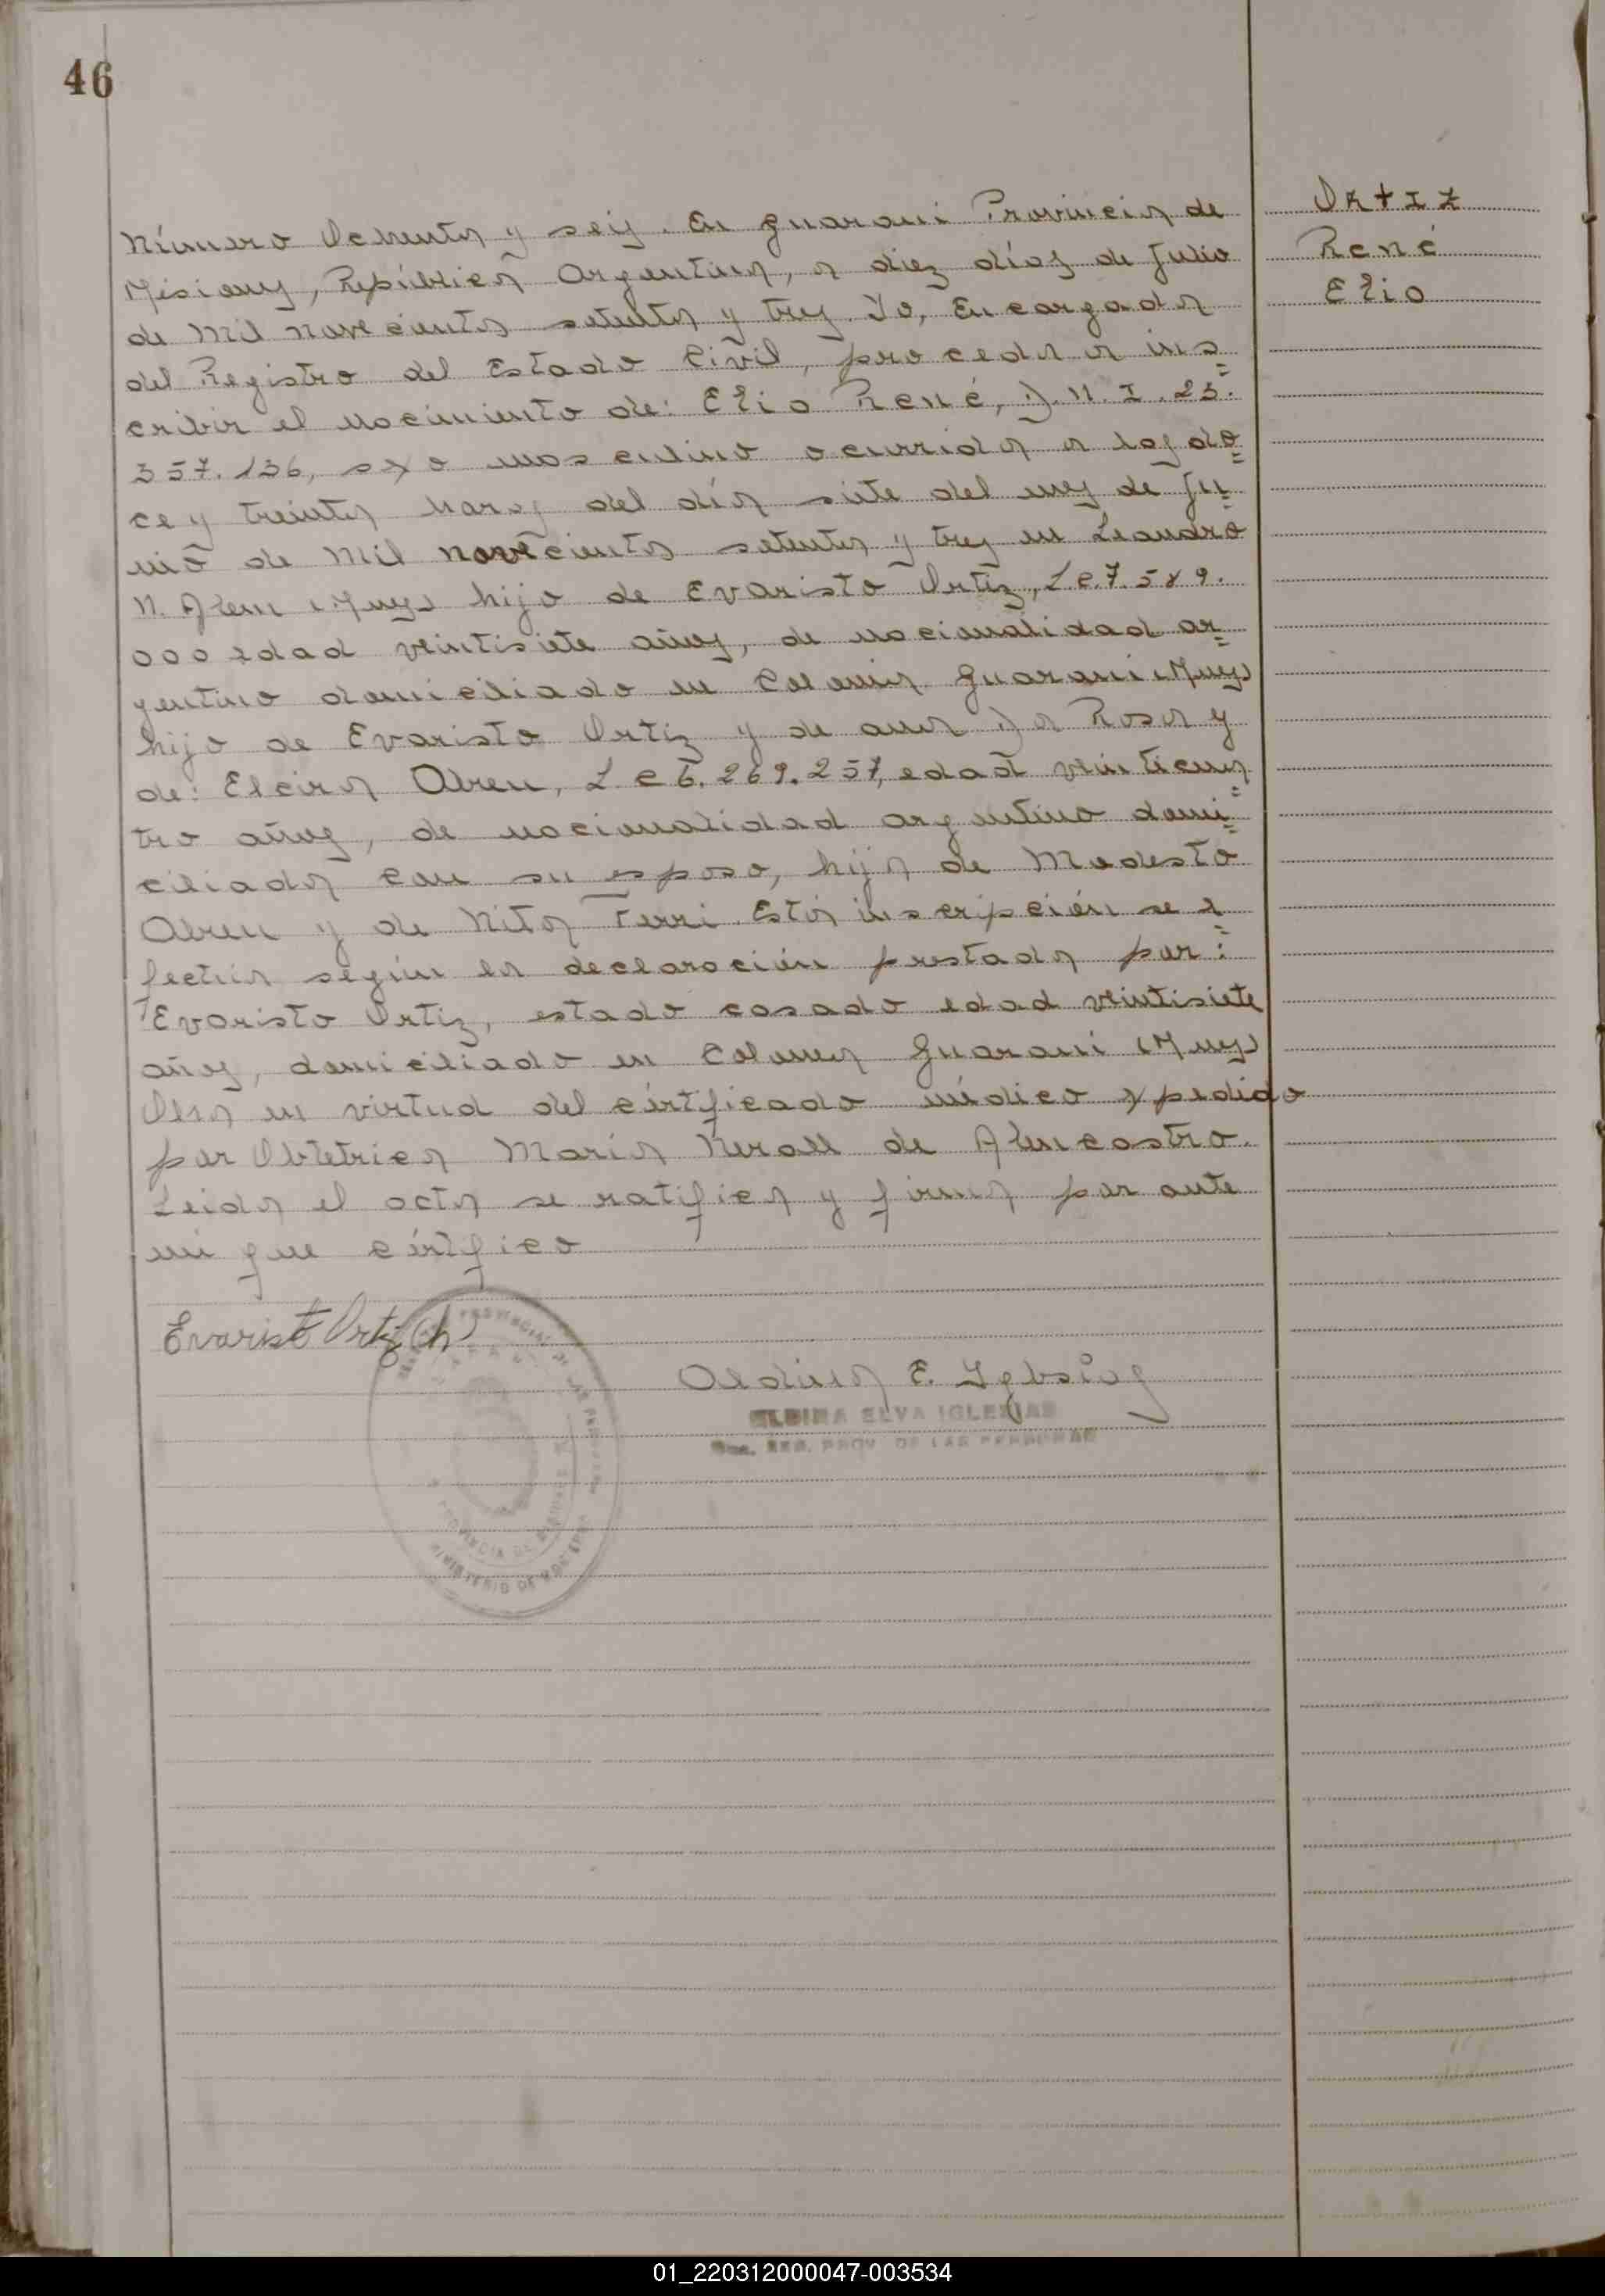 46
Número Ochenta y seis. En Guaraní Provincia de
Misiones, República Argentina, a diez días de Julio
de Mil novecientos setenta y tres. Yo, Encargada
del Registro del Estado Civil, procedo a ins=
cribir el nacimiento de: Elio René, D.N.I. 23.
357.136, sexo masculino ocurrido a las do=
ce y treinta horas del día siete del mes de Ju=
nio de Mil novecientos setenta y tres en Leandro
N. Alem (Mnes) hijo de Evaristo Ortiz, L.E. 7.589.
000 edad veintisiete años, de nacionalidad ar=
gentino domiciliado en Colonia Guaraní (Mnes)
hijo de Evaristo Ortiz y de Rosa y
de: Elcira Abreu, L.C 6.269.257, edad veinticua=
tro años, de nacionalidad argentino domi=
ciliada con su esposo, hija de Modesto
Abreu y de Nita Ferri. Esta inscripción se e=
fectúa según la declaración prestada por:
Evaristo Ortiz, estado casado edad veintisiete
años, domiciliado en Colonia Guaraní (Mnes)
Obra en virtud del cértificado médico expedido
por Obtetrica María de Alencastro.
Leida el acta se ratifica y firma por ante
mi que cértifico
Evaristo Ortiz (h)
Aldina E. Iglesias
ELDINA ELVA IGLESIAS
REG. PROV. DE LAS PERSONAS
PROVINCIA DE MISIONES
MINISTERIO DE GOBIERNO
Ortiz
René
Elio
01_220312000047-003534